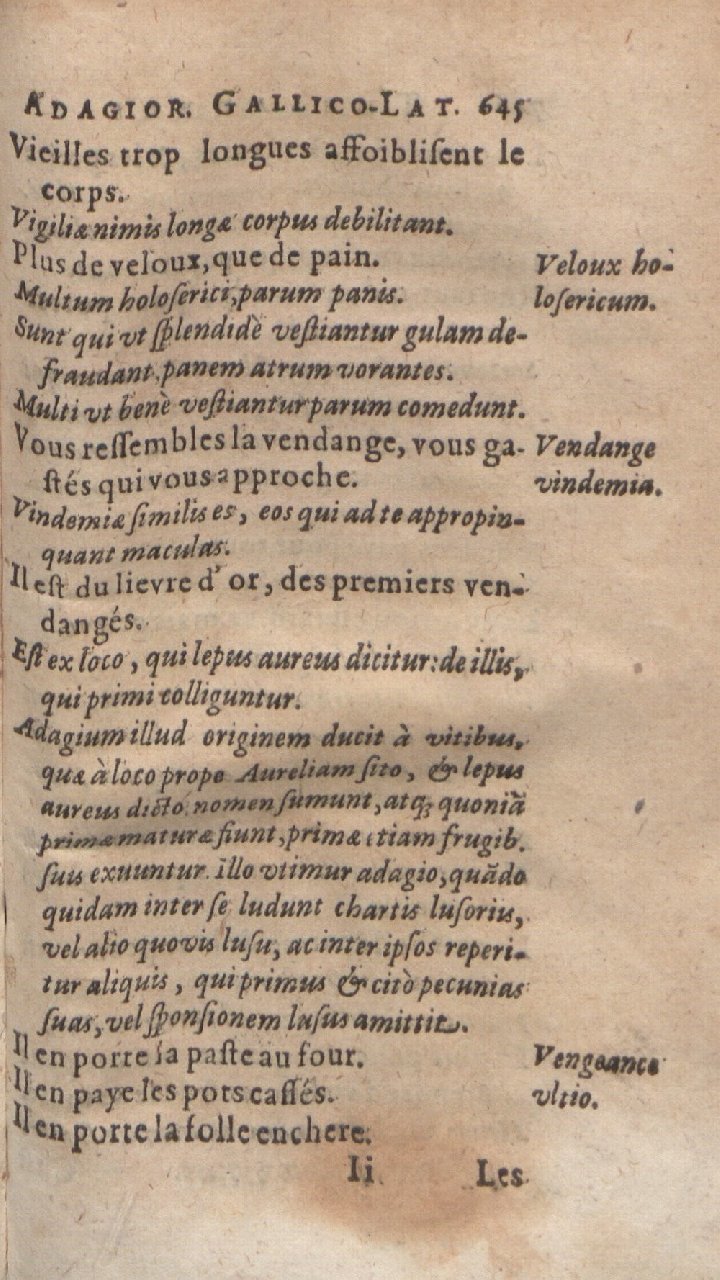 ADAGIOR. GALLICO-LAT. 645
Vieilles trop longues affoibliſent le
corps.
Vigiliæ nimis longæ corpus debilitant.
Plus de veloux, que de pain.
Veloux ho-
Multum holoſerici, parum panis.
loſericum.
Sunt qui vt ſplendidè veſtiantur gulam de-
fraudant, panem atrum vorantes.
Multi vt benè veſtiantur parum comedunt.
Vous reſſembles la vendange, vous ga-
Vendange
ſtés qui vous approche.
vindemia.
Vindemiæ ſimilis es, eos qui ad te appropin-
quant maculas.
Il eſt du lievre d'or, des premiers ven-
dangés.
Eſt ex loco, qui lepus aureus dicitur: de illis,
qui primi colliguntur.
Adagium illud originem ducit à vitibus,
quæ à loco prope Aureliam ſito, & lepus
aureus dicto nomen ſumunt, atq; quoniã
primæ maturæ fiunt, primæ etiam frugib.
ſuis exuuntur. illo vtimur adagio, quãdo
quidam inter ſe ludunt chartis luſoriis,
vel alio quovis luſu, ac inter ipſos reperi-
tur aliquis, qui primus & citò pecunias
ſuas, vel ſponſionem luſus amittit.
Il en porte la paſte au four.
Vengeance
Il en paye les pots caſſés.
vltio.
Il en porte la folle enchere.
Ii
Les